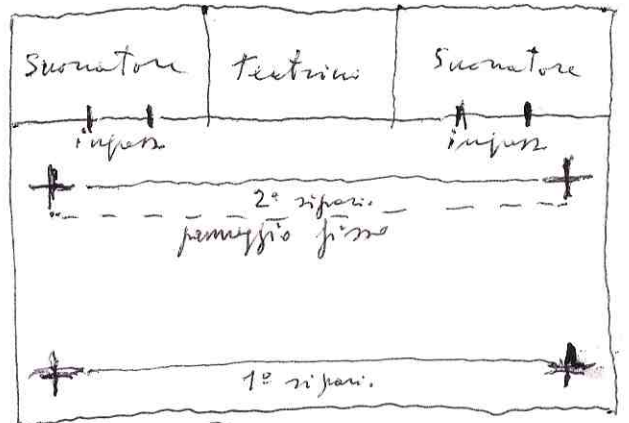 Suonatore Teatrino Suonatore
ingresso ingresso
2º sipario
panneggio fisso
1º sipario